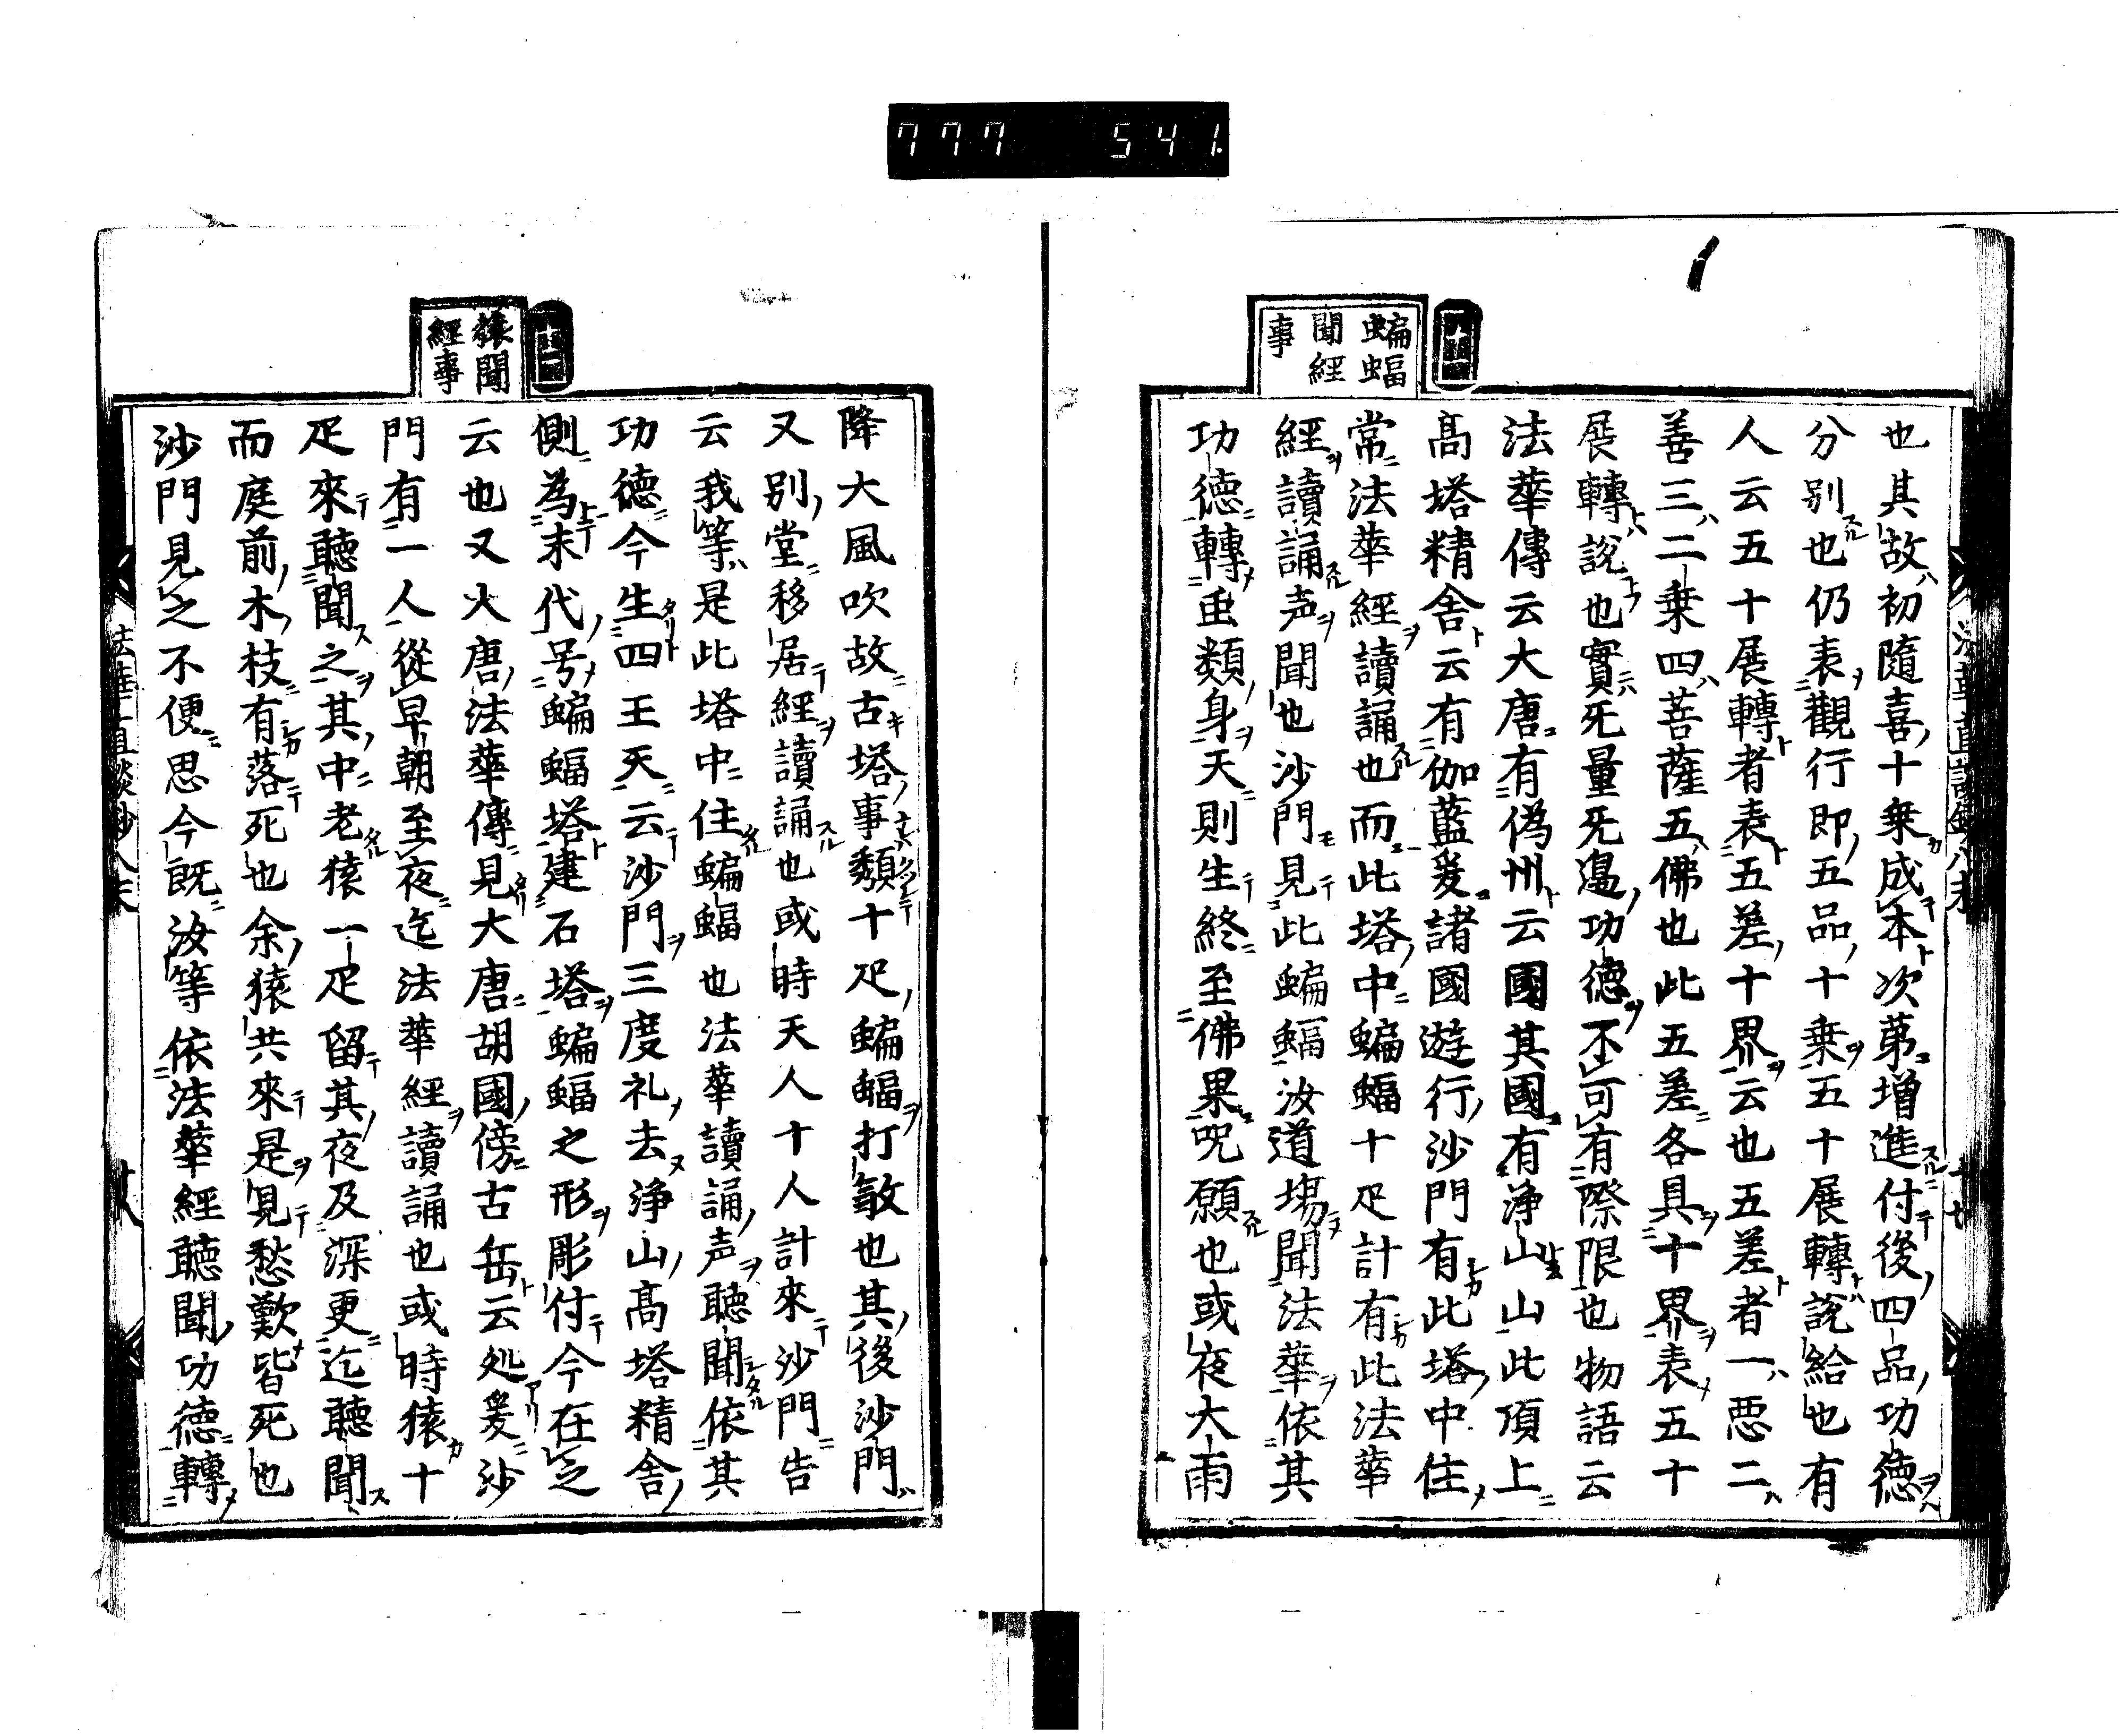 777 541.
蝙蝠
聞經
事
也其故初隨喜十乗成本次第増進付後四品功徳
分別也仍表觀行即五品十乗五十展轉説給也有
人云五十展轉者表五差十界云也五差者一悪二
善三二乗四菩薩五佛也此五差各具十界表五十
展轉説也實無量無邉功徳不可有際限也物語云
法華傳云大唐有偽州云國其國有浄山山此頂上
髙塔精舎云有伽藍爰諸國遊行沙門有此塔中住
常法華經讀誦也而此塔中蝙蝠十疋計有此法華
經讀誦声聞也沙門見此蝙蝠汝道場聞法華依其
功徳轉虫類身天則生終至佛果呪願也或夜大雨
猿聞
經事
降大風吹故古塔事頽十疋蝙蝠打敏也其後沙門
又別堂移居經讀誦也或時天人十人計來沙門告
云我等是此塔中住蝙蝠也法華讀誦声聽聞依其
功徳今生四王天云沙門三度礼去浄山髙塔精舎
側為末代号蝙蝠塔建石塔蝙蝠之形彫付今在之
云也又大唐法華傳見大唐胡國傍古岳云処爰沙
門有一人從早朝至夜迄法華經讀誦也或時猿十
疋來聽聞之其中老猿一疋留其夜及深更迄聽聞
而庭前木枝有落死也余猿共來是見愁歎皆死也
沙門見之不便思今既汝等依法華經聽聞功徳轉